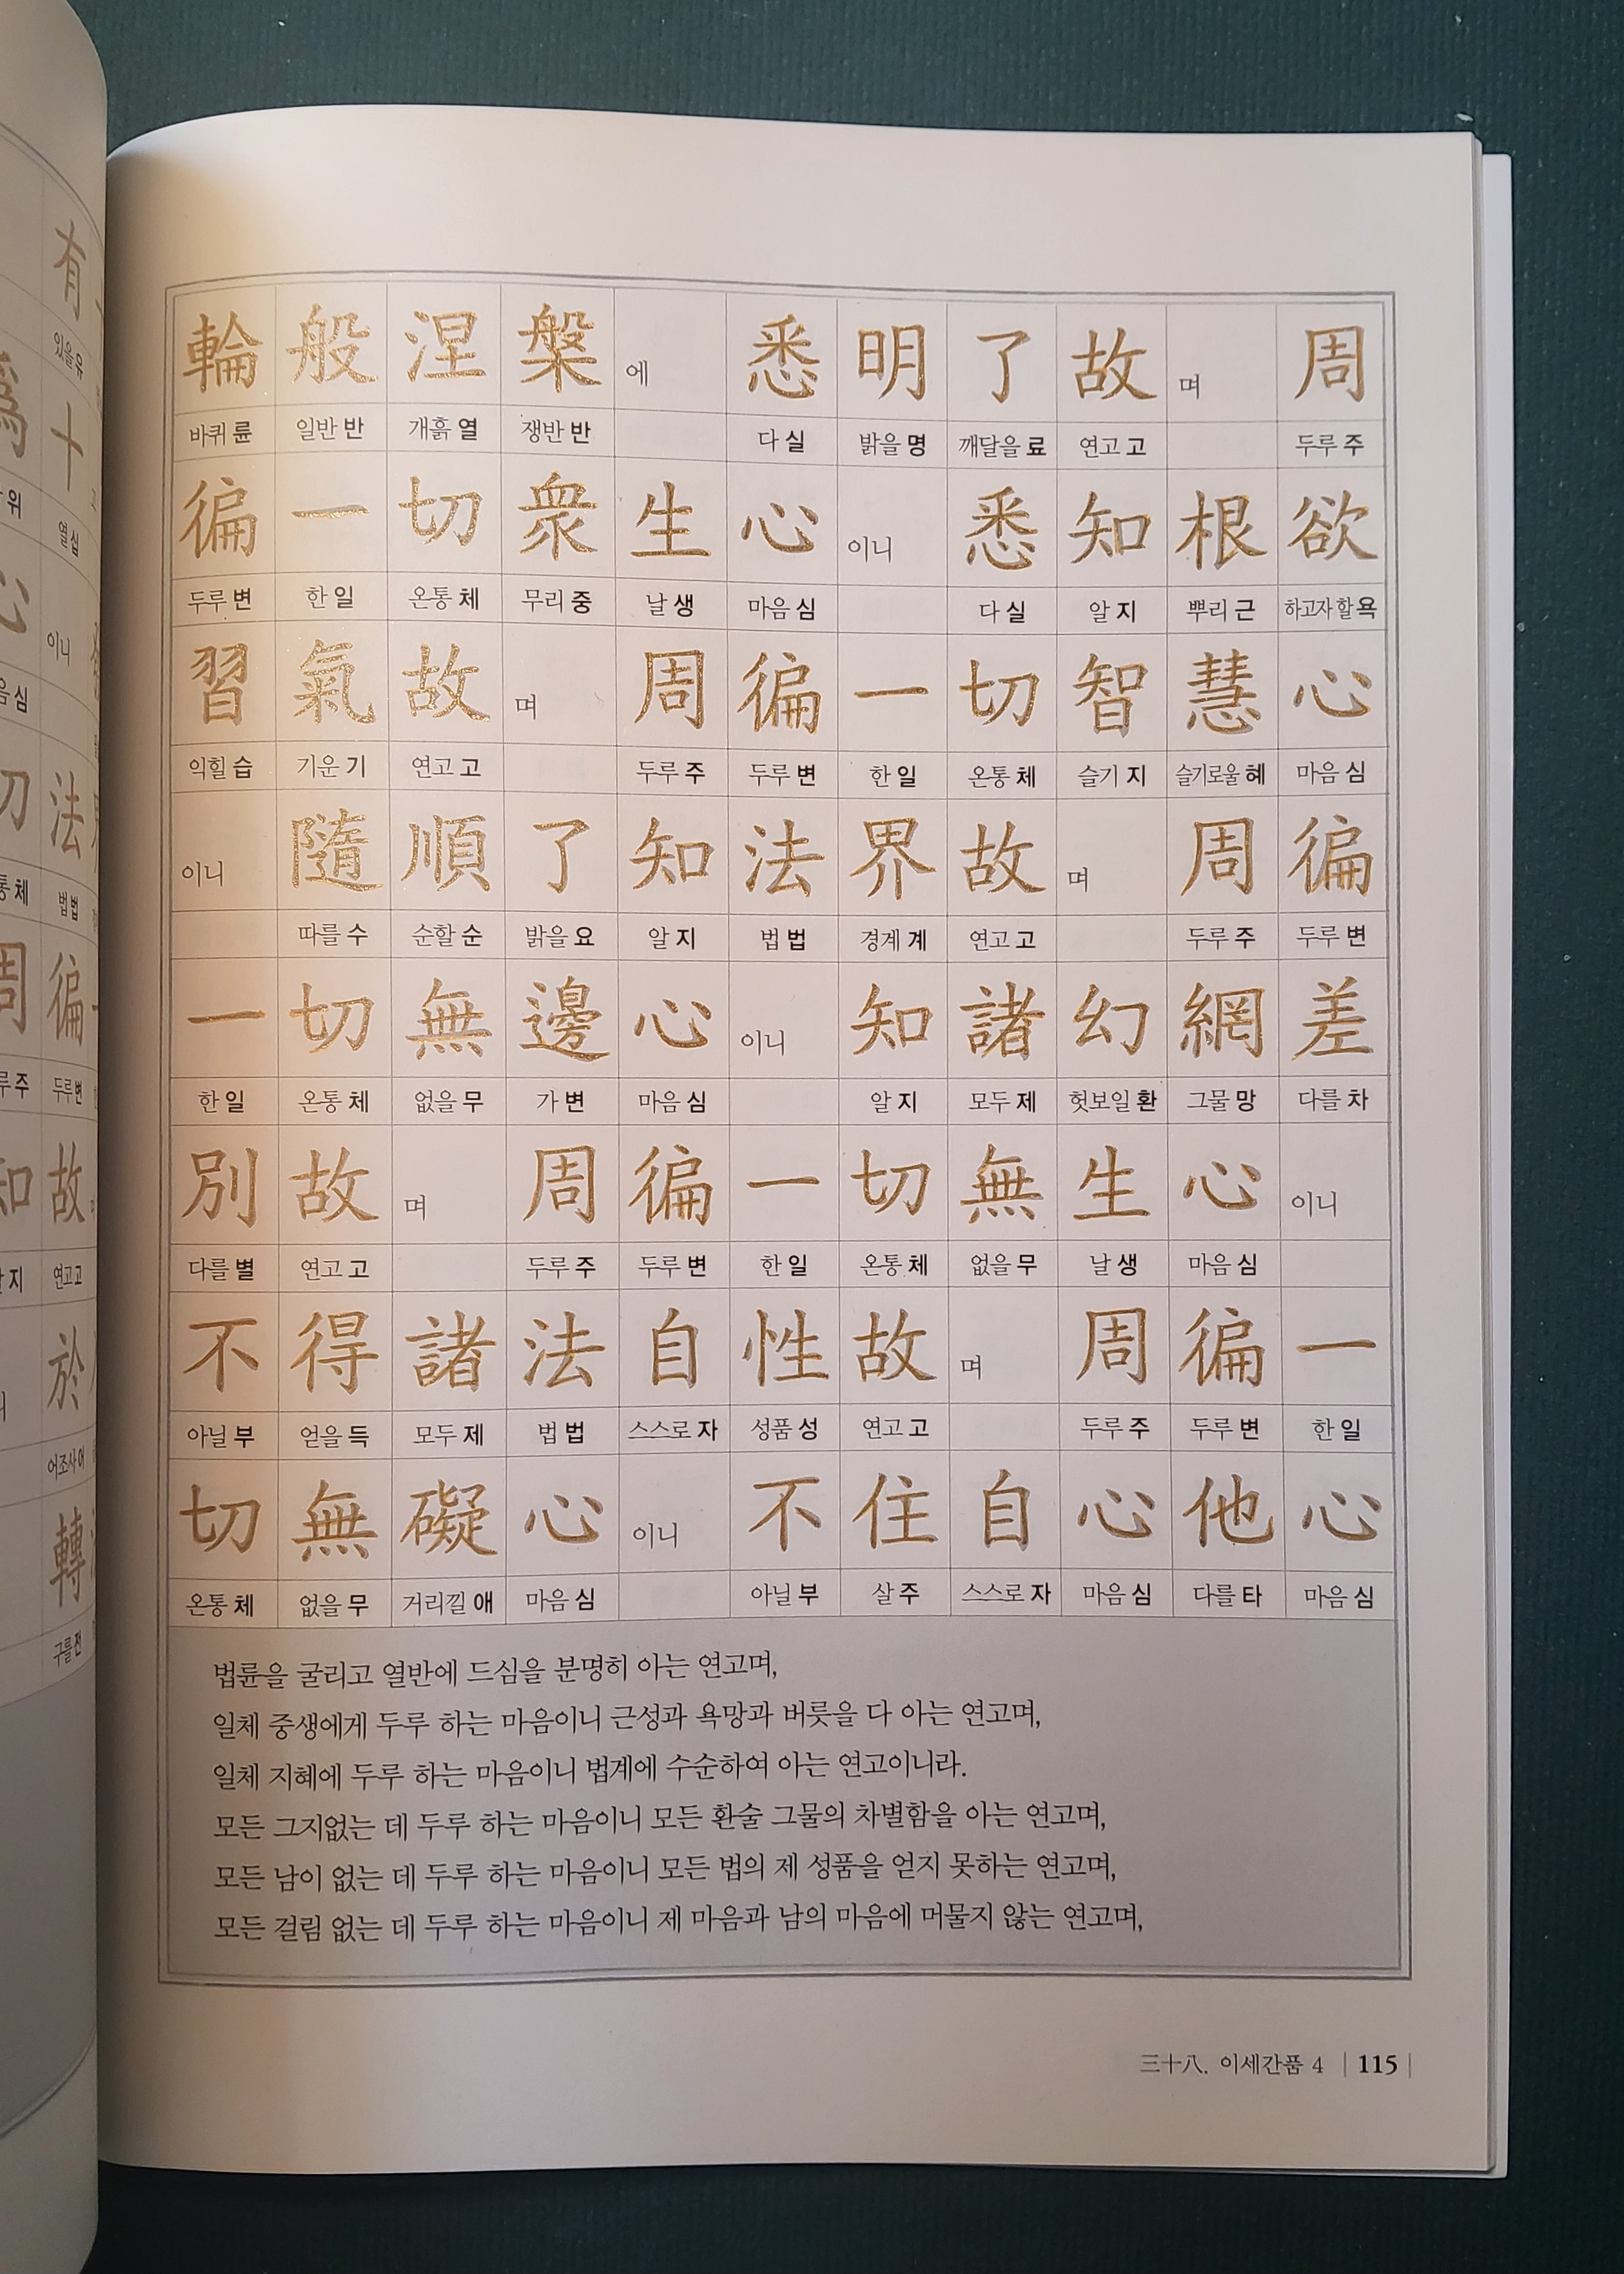 輪 般 涅 槃 에 悉 明 了 故 며 周
바퀴 륜 일반 반 개흙 열 쟁반 반 다 실 밝을 명 깨달을 료 연고 고 두루 주
徧 一 切 衆 生 心 이니 悉 知 根 欲
두루 변 한 일 온통 체 무리 중 날 생 마음 심 다 실 알 지 뿌리 근 하고자 할 욕
習 氣 故 며 周 徧 一 切 智 慧 心
익힐 습 기운 기 연고 고 두루 주 두루 변 한 일 온통 체 슬기 지 슬기로울 혜 마음 심
이니 隨 順 了 知 法 界 故 며 周 徧
따를 수 순할 순 밝을 요 알 지 법 법 경계 계 연고 고 두루 주 두루 변
一 切 無 邊 心 이니 知 諸 幻 網 差
한 일 온통 체 없을 무 가 변 마음 심 알 지 모두 제 헛보일 환 그물 망 다를 차
別 故 며 周 徧 一 切 無 生 心 이니
다를 별 연고 고 두루 주 두루 변 한 일 온통 체 없을 무 날 생 마음 심
不 得 諸 法 自 性 故 며 周 徧 一
아닐 부 얻을 득 모두 제 법 법 스스로 자 성품 성 연고 고 두루 주 두루 변 한 일
切 無 礙 心 이니 不 住 自 心 他 心
온통 체 없을 무 거리낄 애 마음 심 아닐 부 살 주 스스로 자 마음 심 다를 타 마음 심
법륜을 굴리고 열반에 드심을 분명히 아는 연고며,
일체 중생에게 두루 하는 마음이니 근성과 욕망과 버릇을 다 아는 연고며,
일체 지혜에 두루 하는 마음이니 법계에 수순하여 아는 연고이니라.
모든 그지없는 데 두루 하는 마음이니 모든 환술 그물의 차별함을 아는 연고며,
모든 남이 없는 데 두루 하는 마음이니 모든 법의 제 성품을 얻지 못하는 연고며,
모든 걸림 없는 데 두루 하는 마음이니 제 마음과 남의 마음에 머물지 않는 연고며,
三十八. 이세간품 4 | 115 |
有
있을 유
十
열 십
이니
法
법 법
徧
두루 변
故
연고 고
於
어조사 어
轉
구를 전